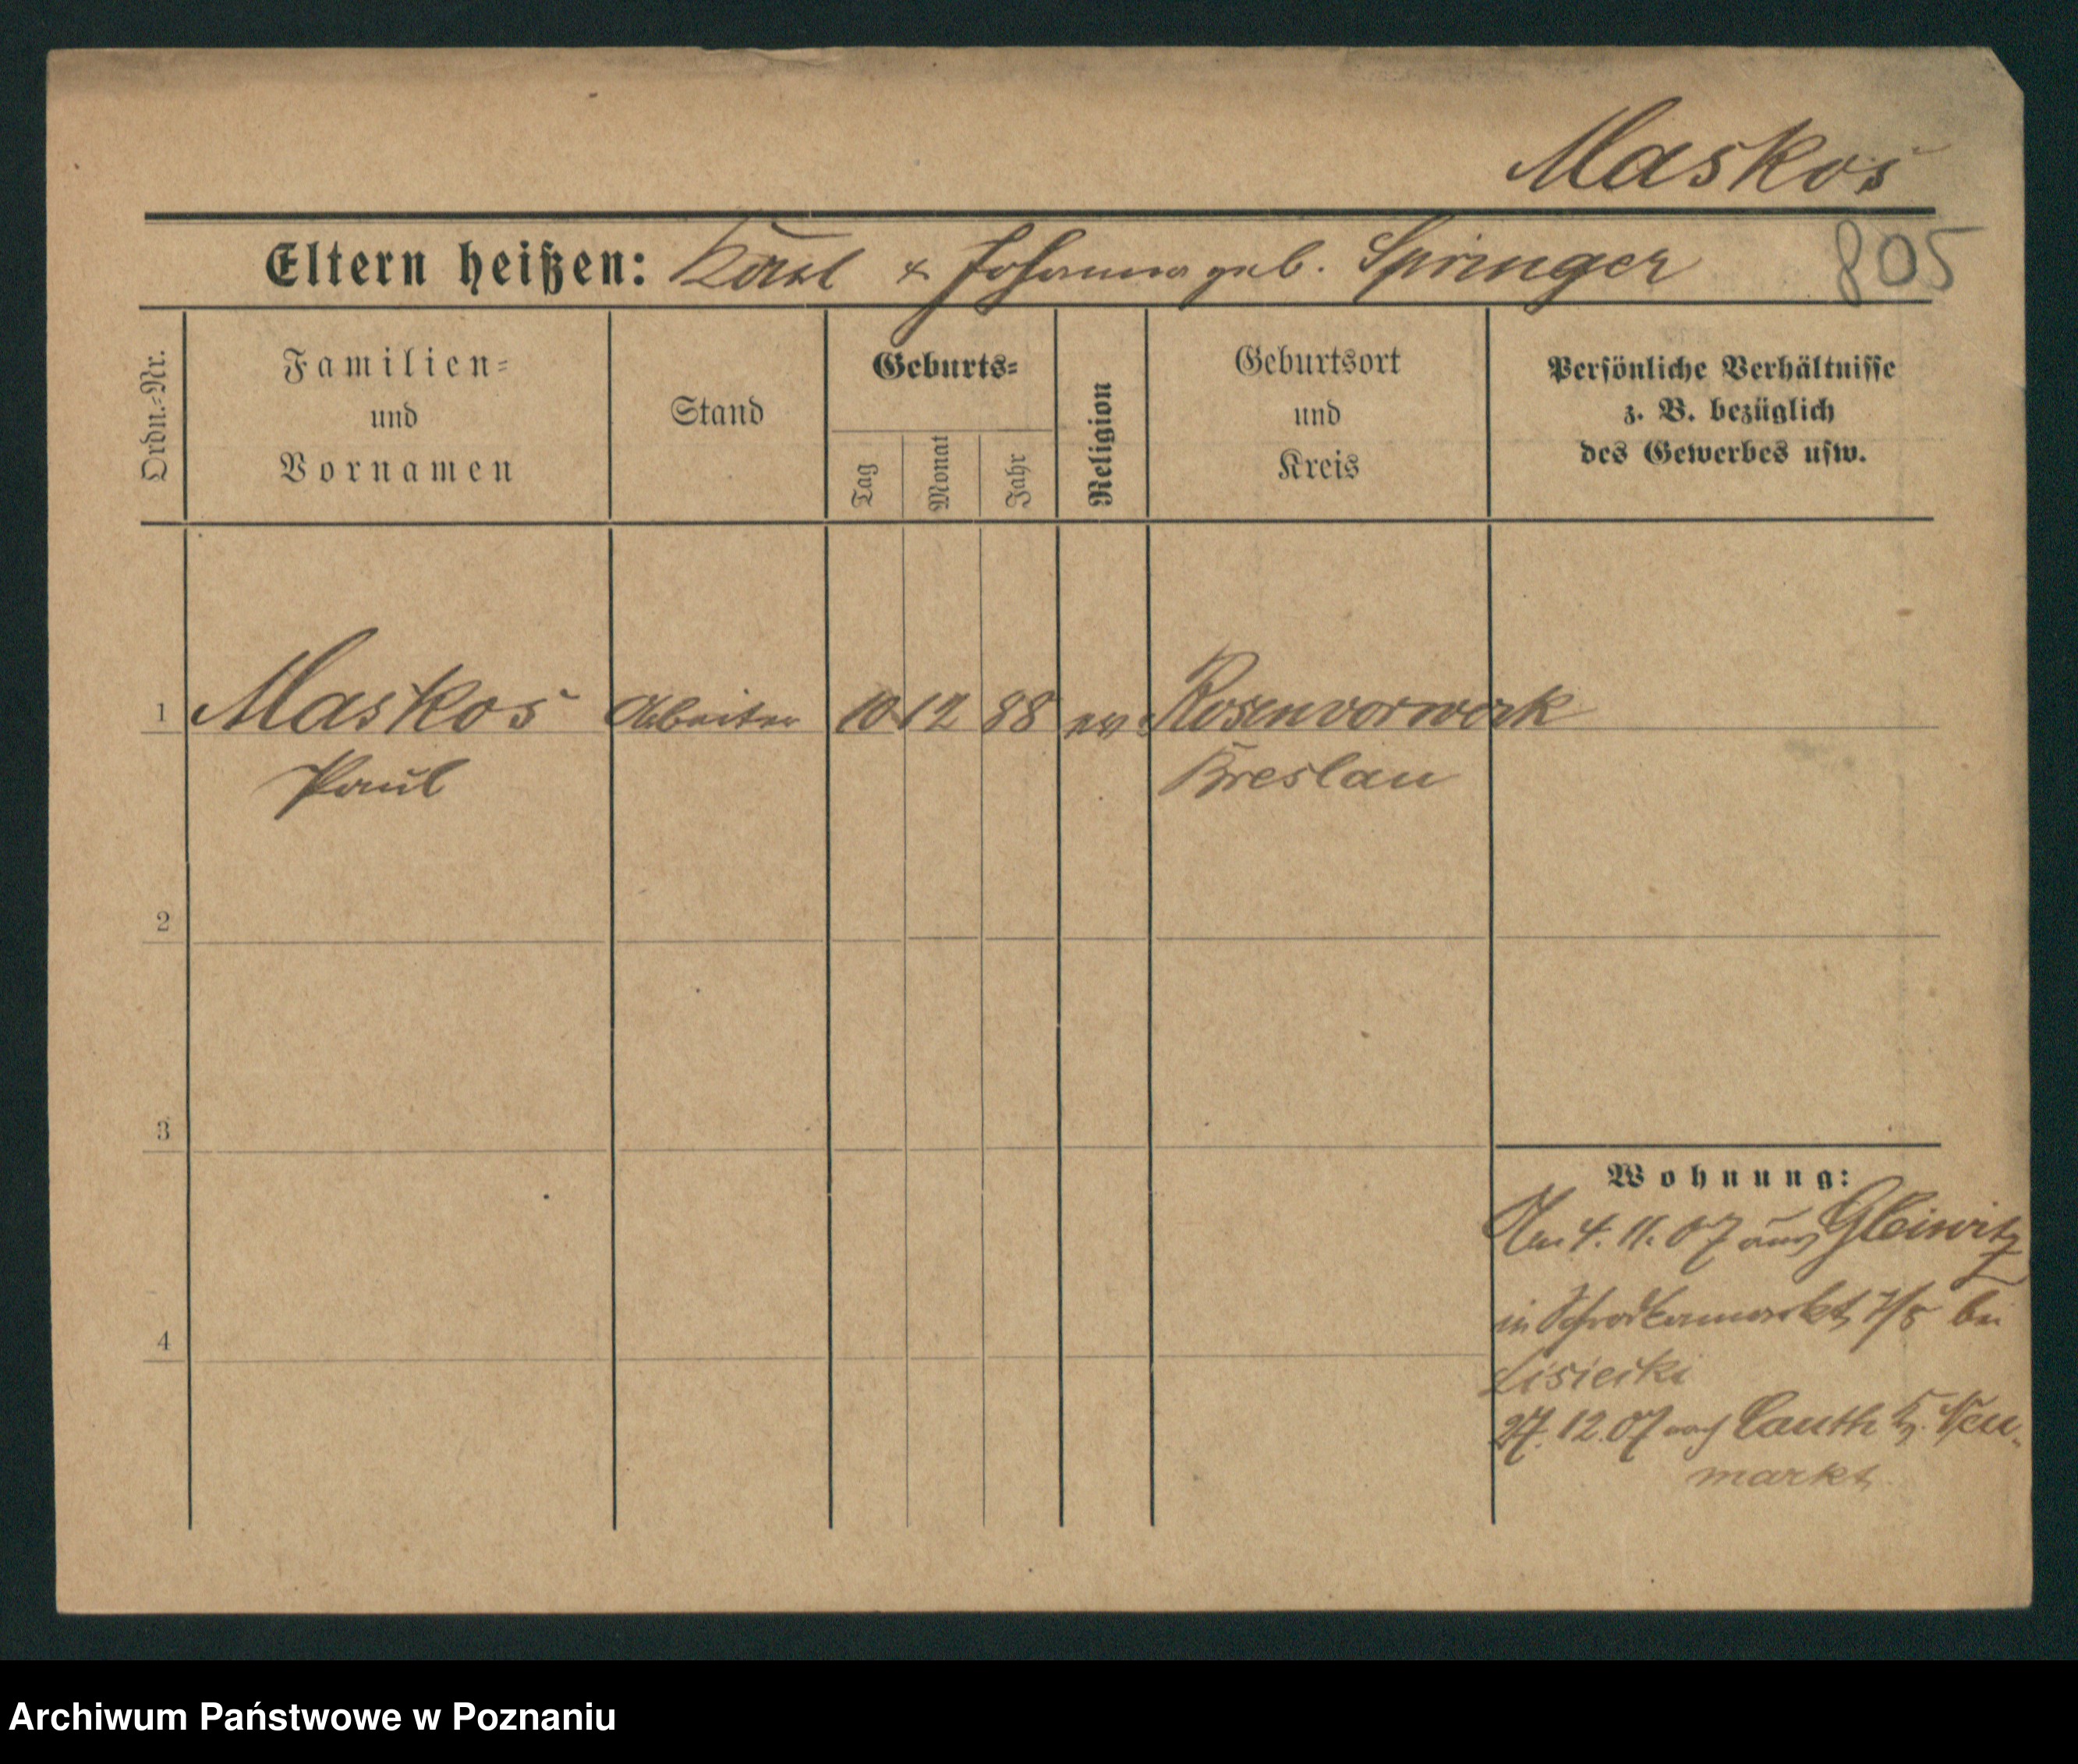 Maskos
805
Eltern heißen: Karl & Johanna geb. Springer
Ordn.-Nr.
Familien-
und
Vornamen
Stand
Geburts-
Tag
Monat
Jahr
Religion
Geburtsort
und
Kreis
Persönliche Verhältnisse
z. B. bezüglich
des Gewerbes usw.
1 Maskos Arbeiter 10 12 88 ev. Rosenvorwerk
Paul Breslau
2
3
4
Wohnung:
4. 11. 07 aus Gleiwitz
in Schrodkamarkt 7/8 bei
Lisiecki
27. 12. 07 nach Canth K. Neu-
markt
Archiwum Państwowe w Poznaniu